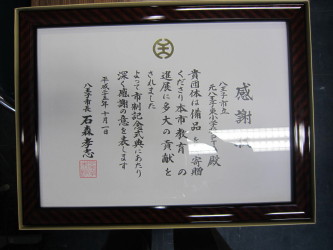 感謝
八王子市立
元八王子東小学 殿
貴団体は備品 寄贈
くださり本市教育 の
進展に多大の貢献を
されました
よって市制記念式典にあたり
深く感謝の意を表します
平成二十五年十月一日
八王子市長 石森孝志